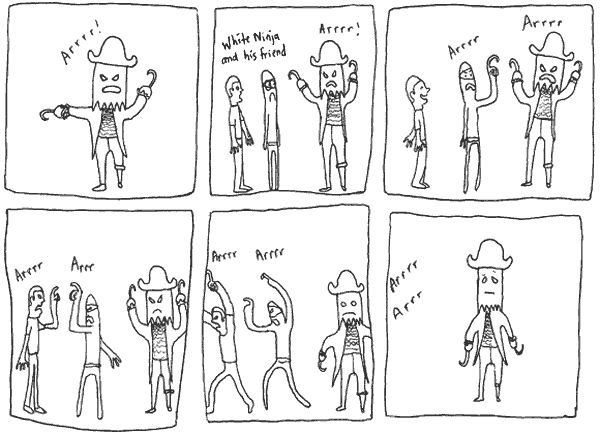 Arrrr!
White Ninja
and his friend
Arrrr!
Arrrr
Arrrr
Arrrr
Arrr
Arrrr
Arrrr
Arrrr
Arrr